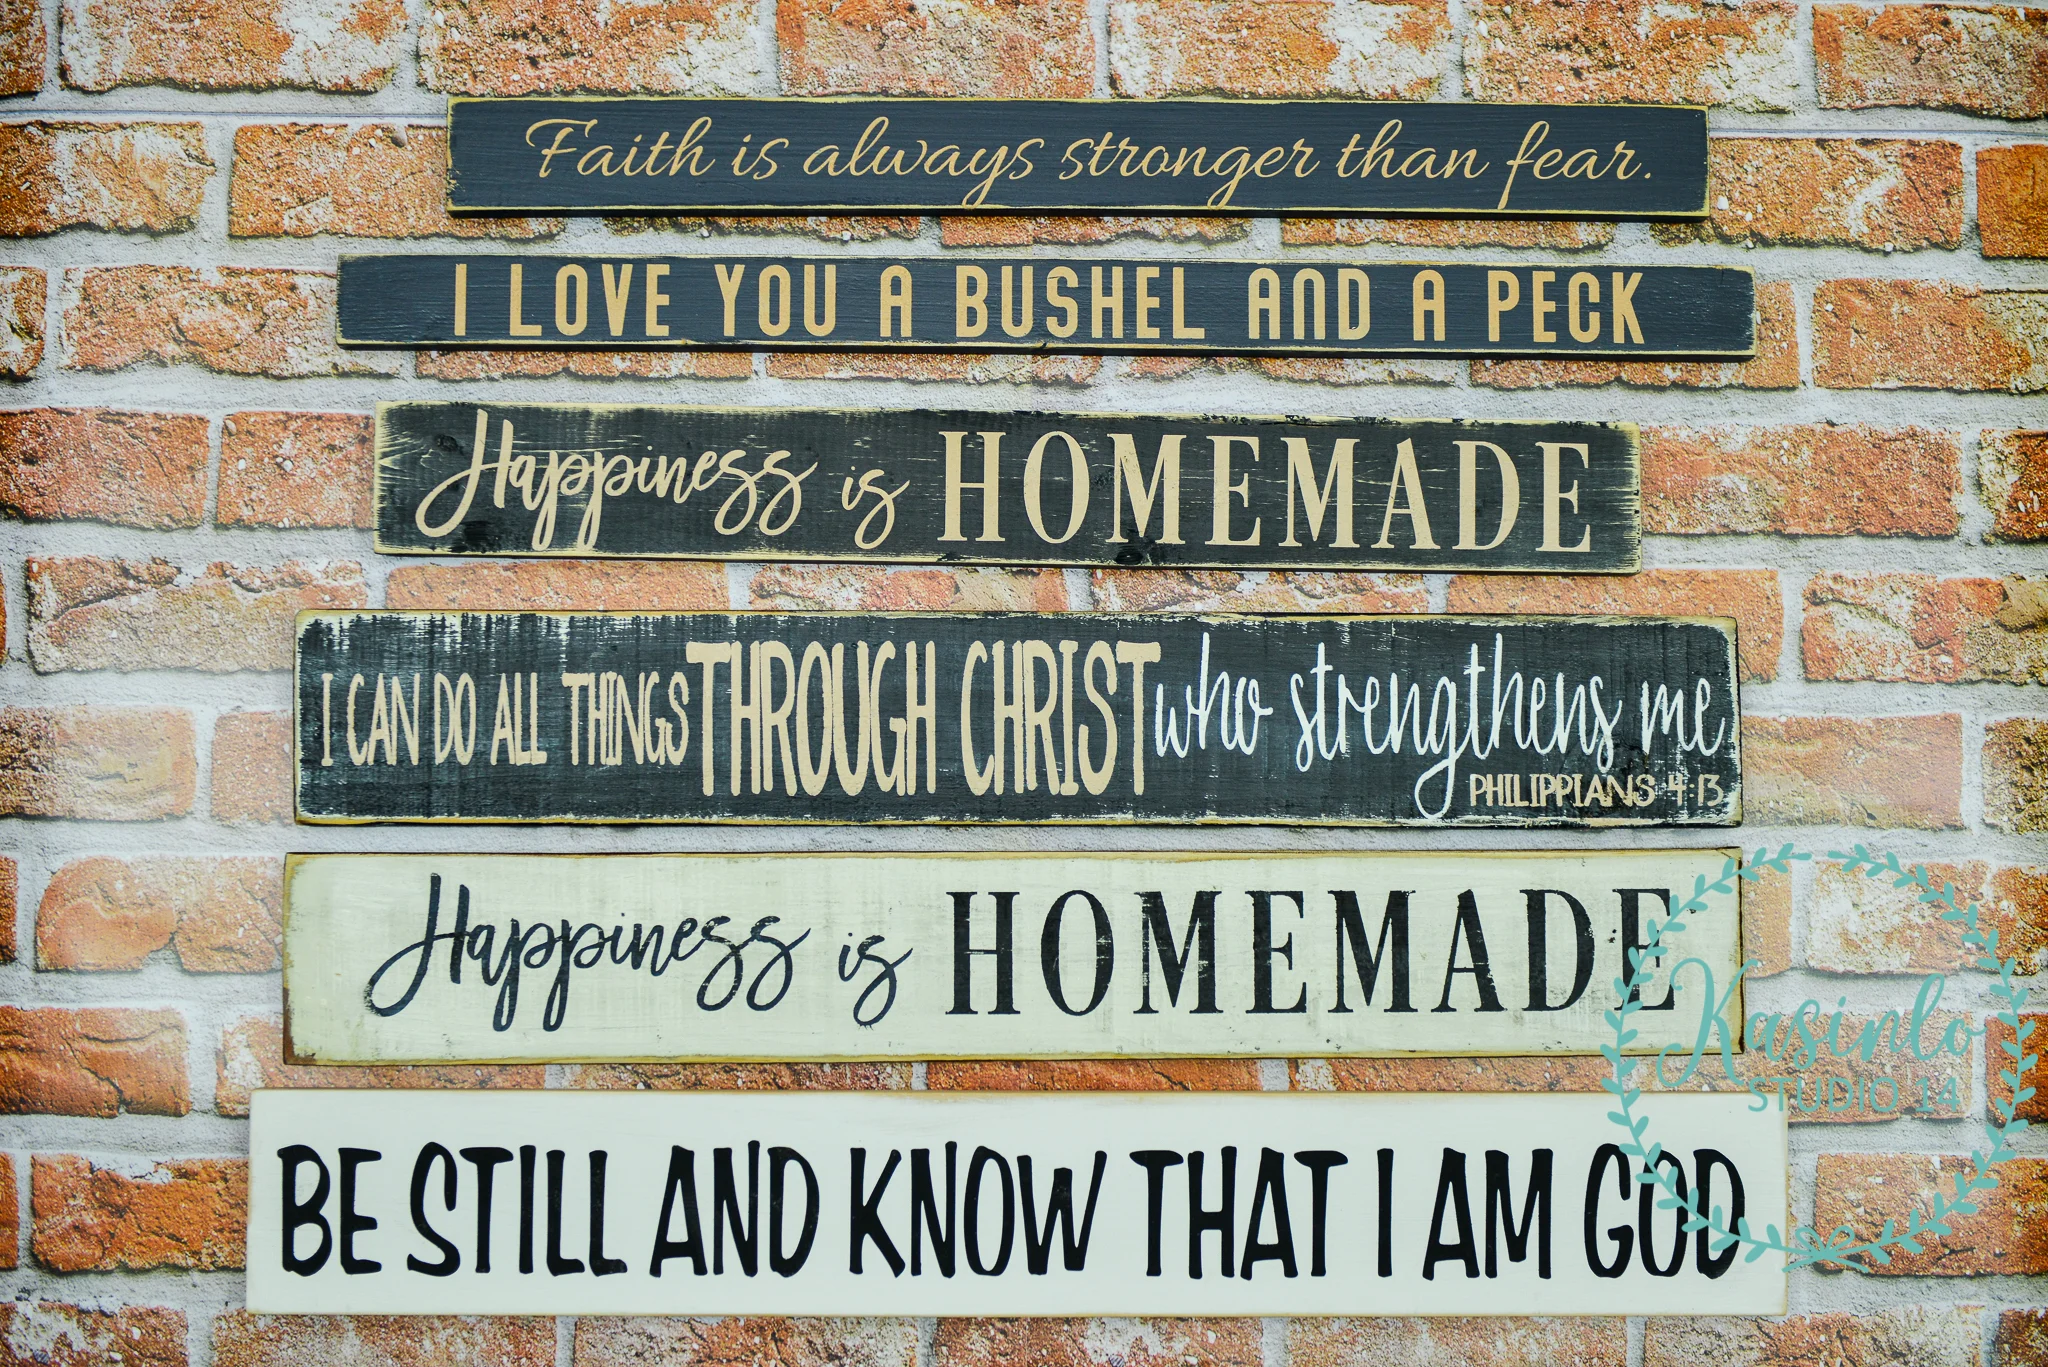 Faith is always stronger than fear.
I LOVE YOU A BUSHEL AND A PECK
Happiness is HOMEMADE
I CAN DO ALL THINGS THROUGH CHRIST who strengthens me
PHILIPPIANS 4:13
Happiness is HOMEMADE
Kasinlo
STUDIO 14
BE STILL AND KNOW THAT I AM GOD